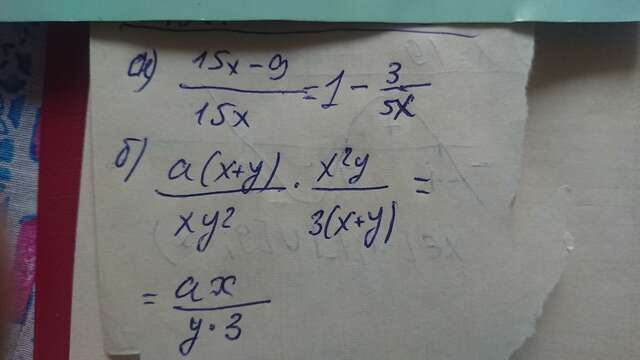 а) (15x-9)/(15x) = 1 - 3/(5x)
б) (a(x+y))/(xy²) · (x²y)/(3(x+y)) =
= (ax)/(y·3)